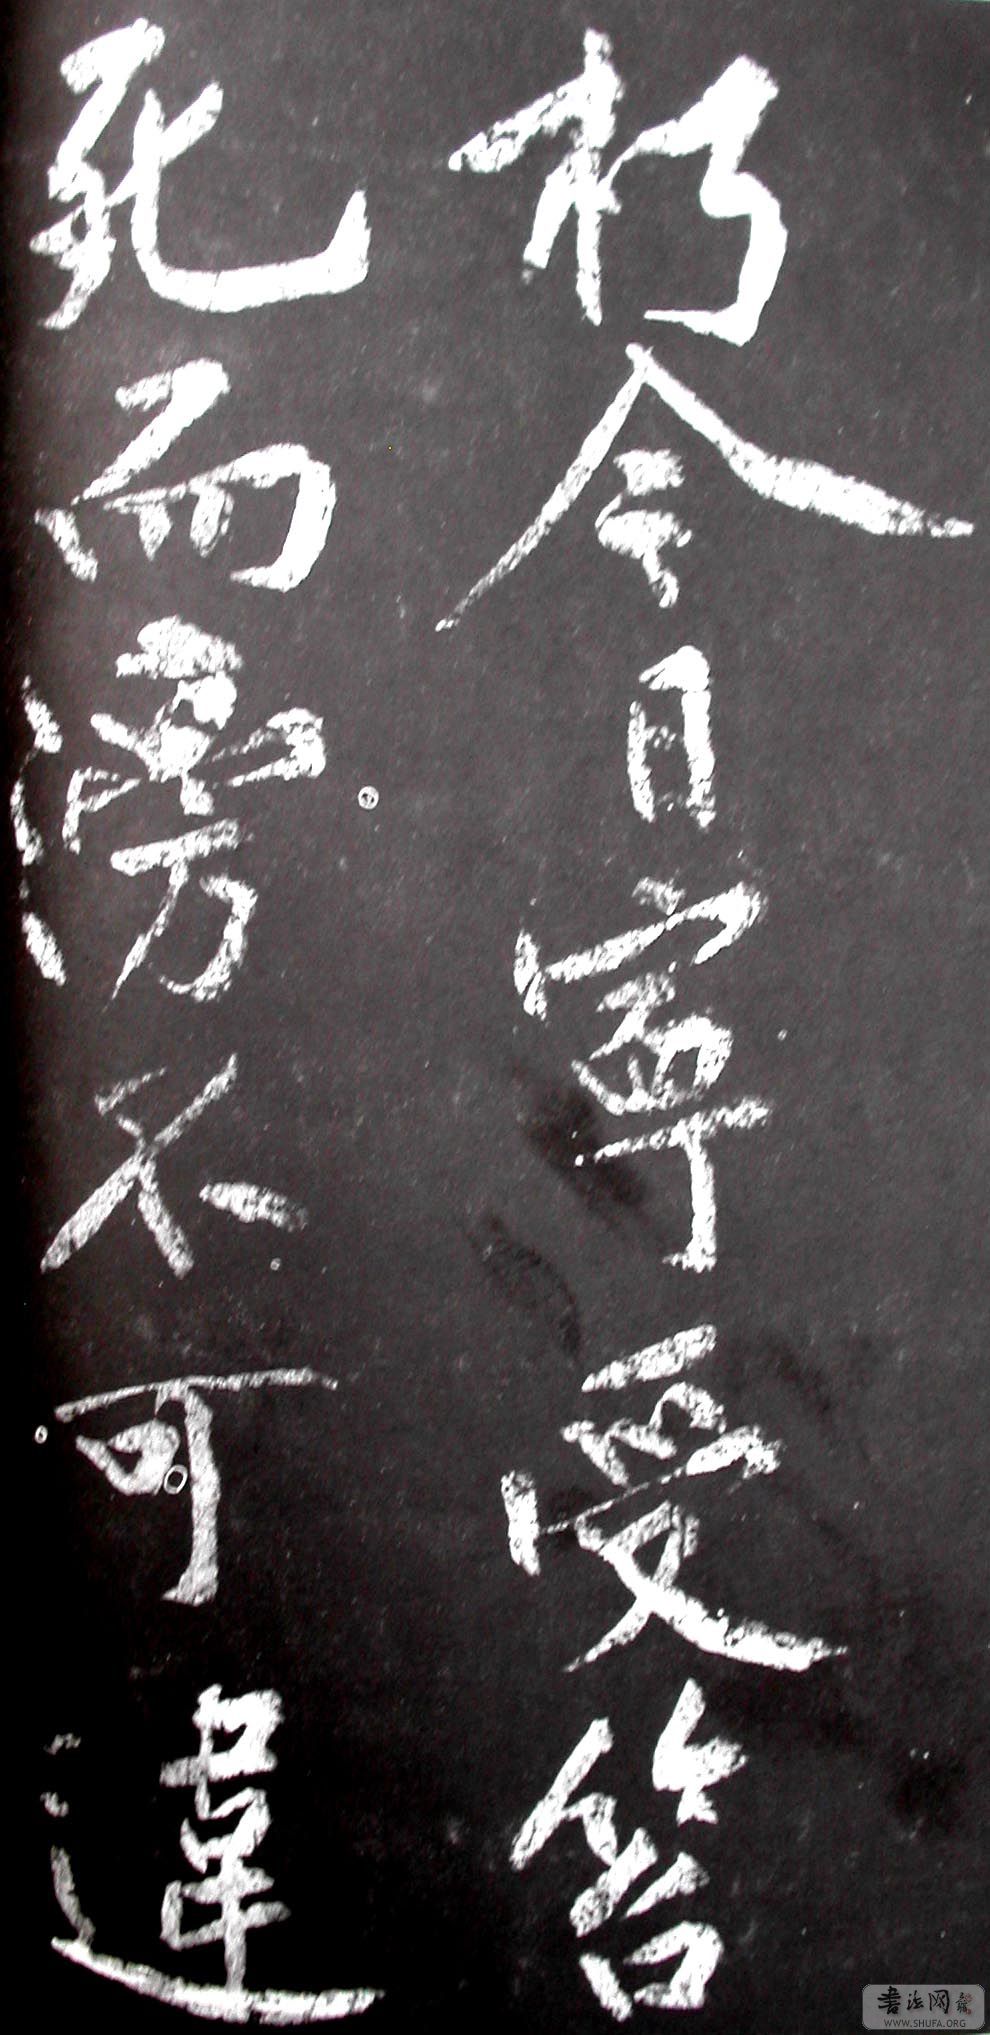 朽今日寧受笞
死而滂不可違
書法网
WWW.SHUFA.ORG